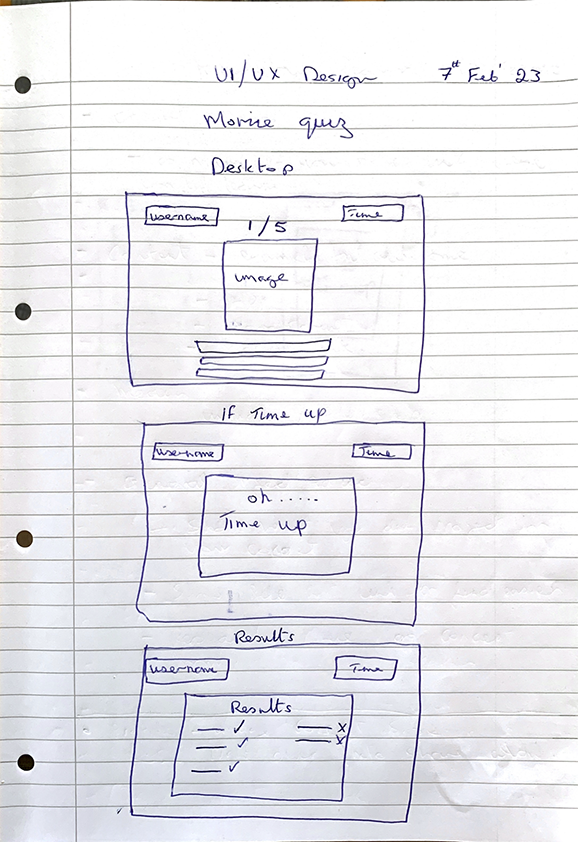 UI/UX Design 7th Feb' 23
Movie quiz
Desktop
username Time
1/5
image
If Time up
username Time
oh.....
Time up
Results
username Time
Results